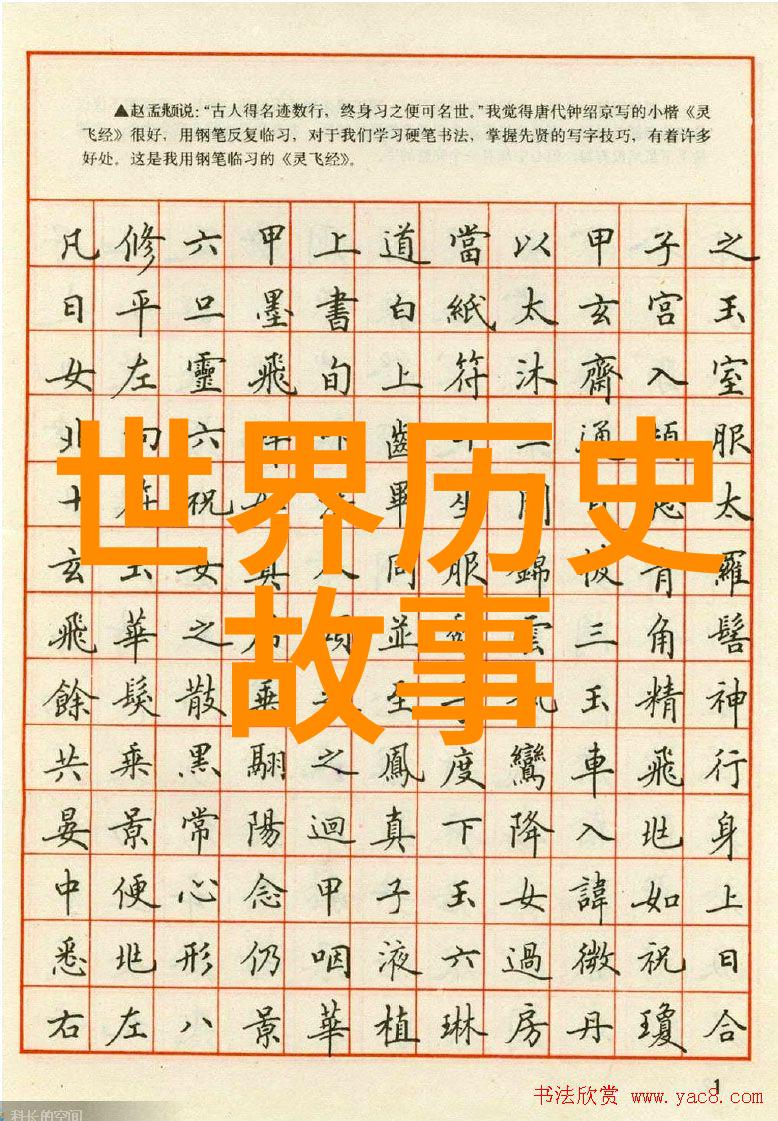 ▲赵孟頫说：“古人得名迹数行，终身习之便可名世。”我觉得唐代钟绍京写的小楷《灵
飞经》很好，用钢笔反复临习，对于我们学习硬笔书法，掌握先贤的写字技巧，有着许多
好处。这是我用钢笔临习的《灵飞经》。
凡修六甲上道當以甲子之
日平旦墨書白紙太玄宮玉
女左靈飛旬上符沐齋入室
北向六拜叩齒十二通頓服
十符祝如左畢坐閉目思太
玄玉女真人同服錦帔青羅
飛華之裙頭並頹雲三角髻
餘髮散垂之至手執玉精神
共乘黑翮之鳳度鸞車飛行
晏景常陽迴真下降入兆身
中便心念甲子玉女諱如上
悉兆形仍咽液六過微祝日
右左八景華植琳房丹瓊合
世界历史
故事
1
书法欣赏 www.yac8.com
科长的空间